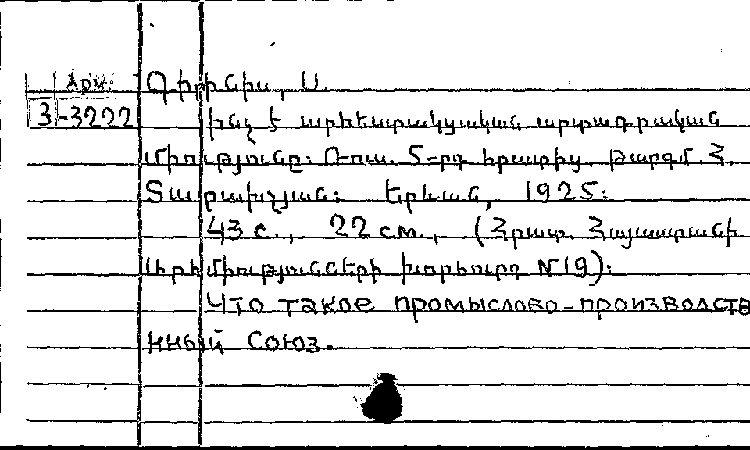 Арм. Գիրինիս, Ս.
3-3222 Ինչ է արհեստակցական արտադրական
միությունը: Ռուս. 5-րդ հրատից. թարգմ. Հ.
Տարախչյան: Երևան, 1925:
43 с., 22 см., (Հրատ. Հայաստանի
Արհ միությունների խորհուրդ №19):
Что такое промыслово-производстве
нный Союз.